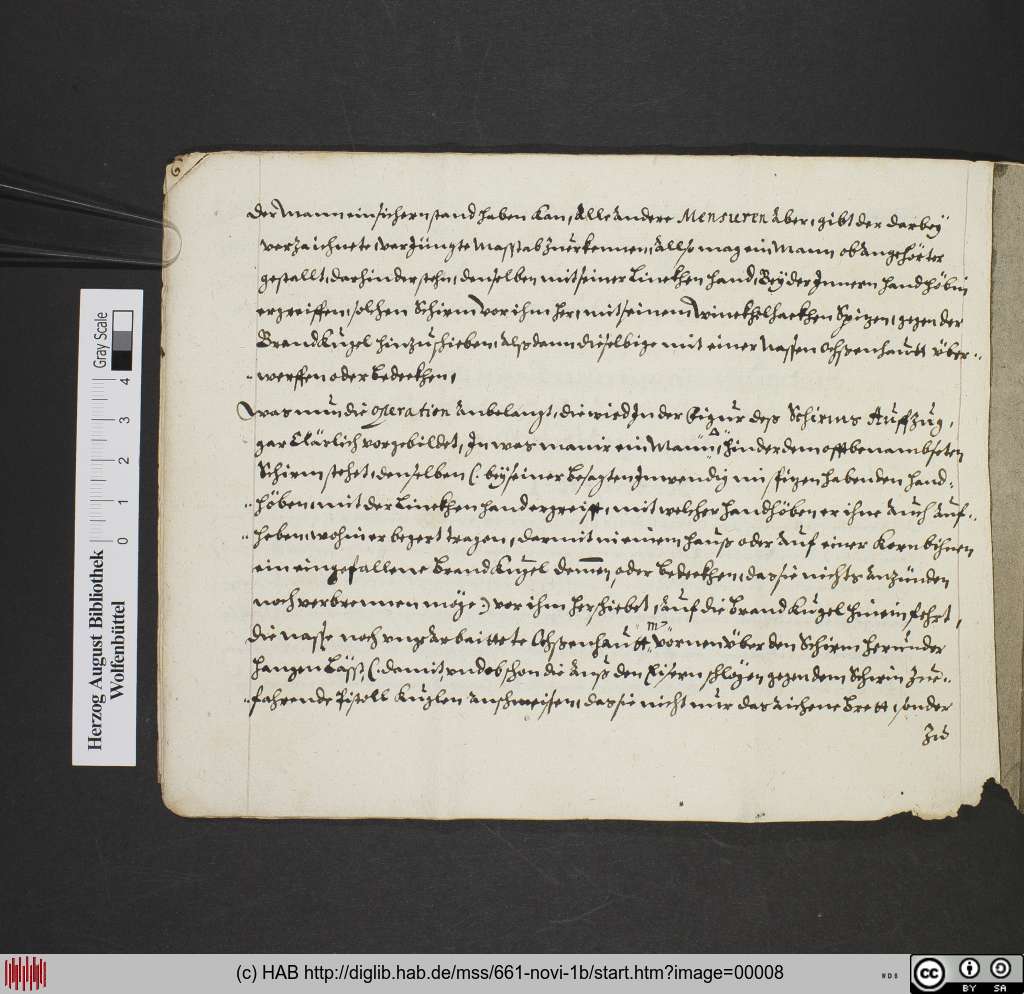 6
der Mann ein sichern stand haben kan, Alle andere Mensuren aber, gibt der darbeÿ
verzaichnete, verJüngte Masstab zuerkennen, Allso mag ein Mann ob angehörter
gestallt, darhinder stehn, denselben mit seiner Linckhen hand, Beÿ der Innern handhöbin
ergreiffen, solchen Schirm vor ihm her, mit seinem Winckhelhackhen Spizen, gegen der
Brand Kugel hinzuschieben, Alßdann dieselbige mit einer Nassen Ochßenhautt über-
werffen oder bedeckhen,
Was nun die operation anbelangt, die wird In der Figur deß Schirms Auffzug,
gar Clärlich vorgebildet, In was manir ein Mann, hinder dem offtbenambseten
Schirm stehet, denselben (: beÿ seiner besagten Inwendig
höben, mit der Linckhen hand ergreifft, mit welcher handhöben er ihne Auch auf-
heben, wohin er begert tragen, darmit in einem hauß oder auf einer Kornbihnen
ein eingefallene Brand Kugel demen, oder bedeckhen, das sie nichts anzünden
noch verbrennen möge :) vor ihm herschiebet, auf die Brand Kugel hinein fehrt,
die nasse noch ungearbaittete Ochßenhautt, vornen über den Schirm herunder
hangen Lässt, (: damit, und obschon die auß den Eisern schlägen gegen dem Schirm zue-
fahrende Pistoll Kuglen anschmeisen, das sie nicht nur das aichene Brett, sonder
zu
Herzog August Bibliothek
Wolfenbüttel
Gray Scale
0 1 2 3 4
(c) HAB http://diglib.hab.de/mss/661-novi-1b/start.htm?image=00008
cc BY SA